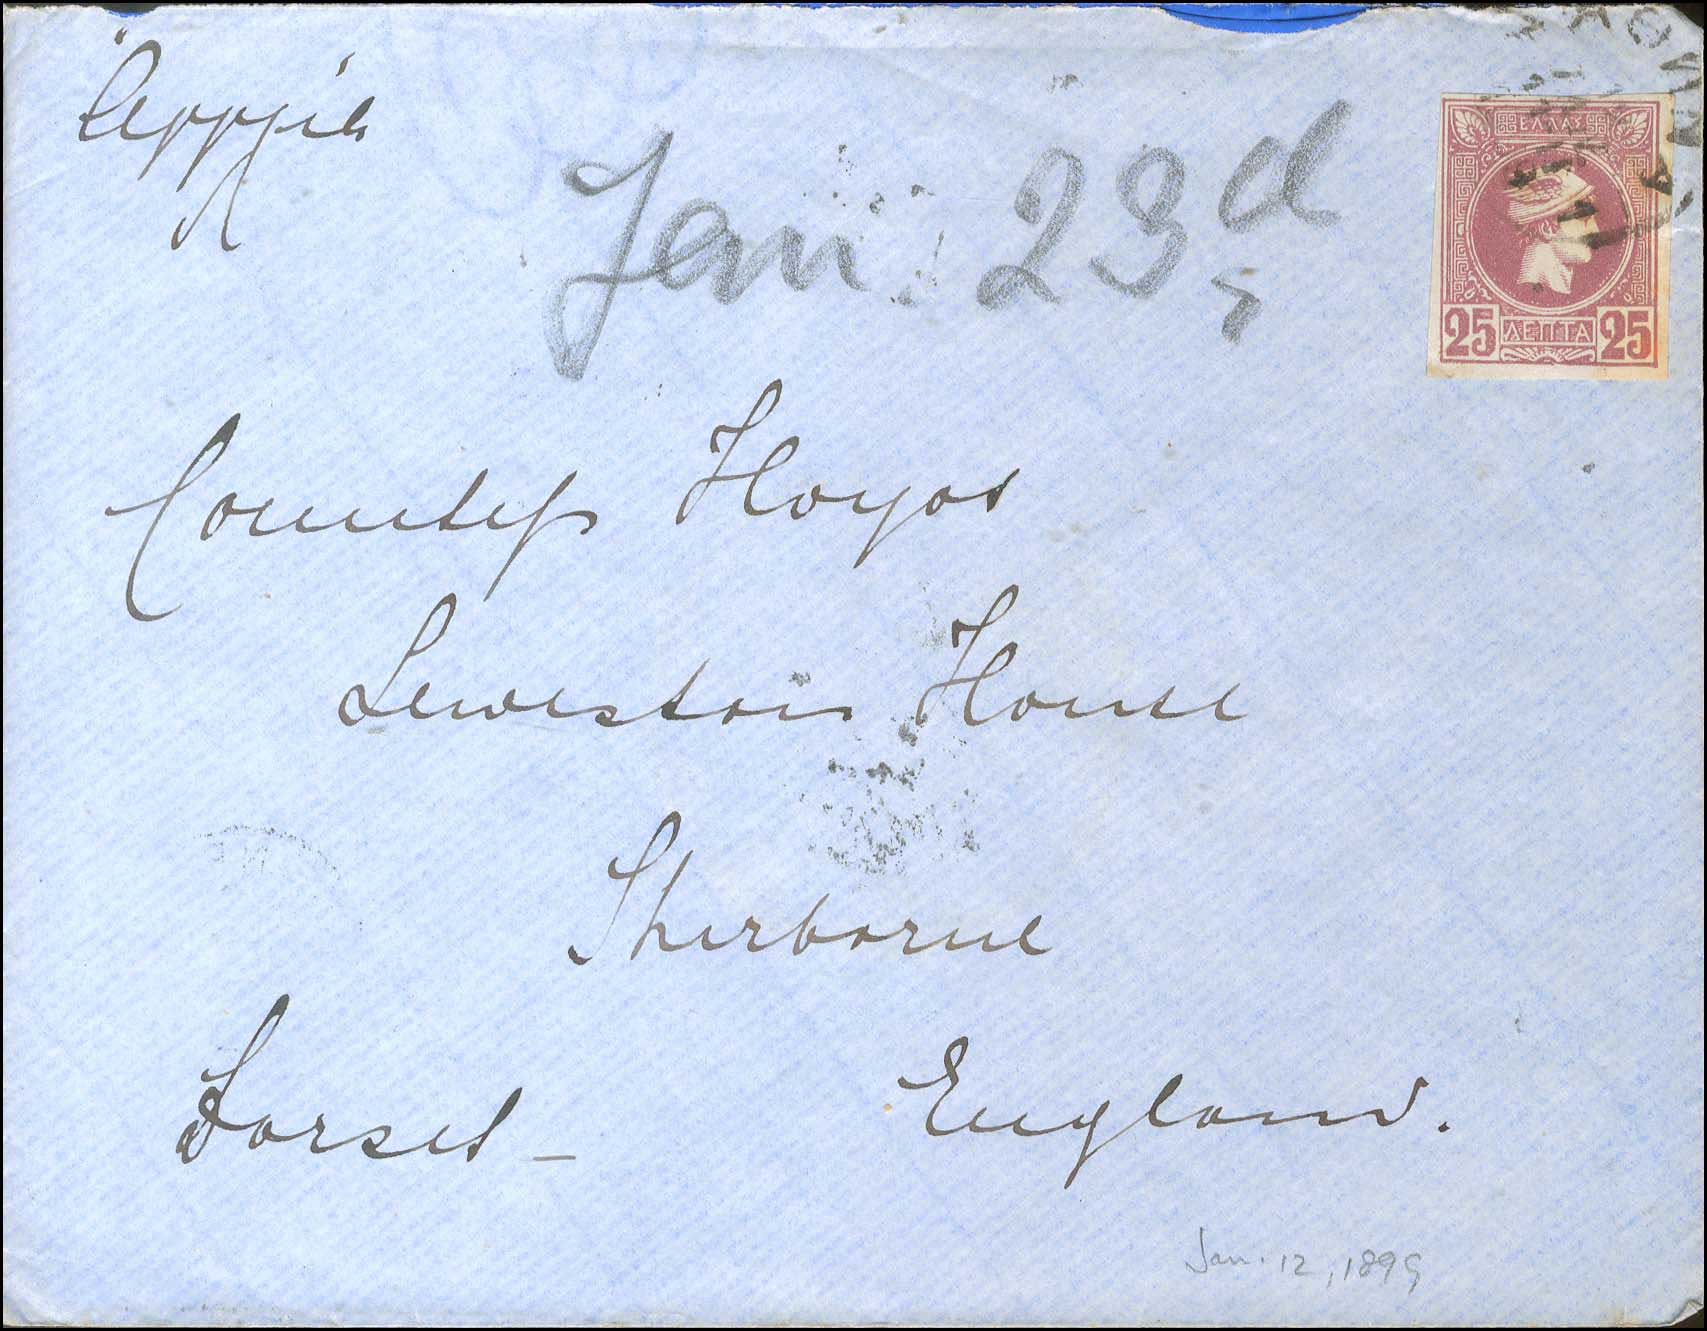 Ἀγγλία
Jan: 23rd
ΕΛΛΑΣ
25 ΛΕΠΤΑ 25
Countess Hoyos
Leweston House
Sherborne
Dorset – England.
Jan. 12, 1899